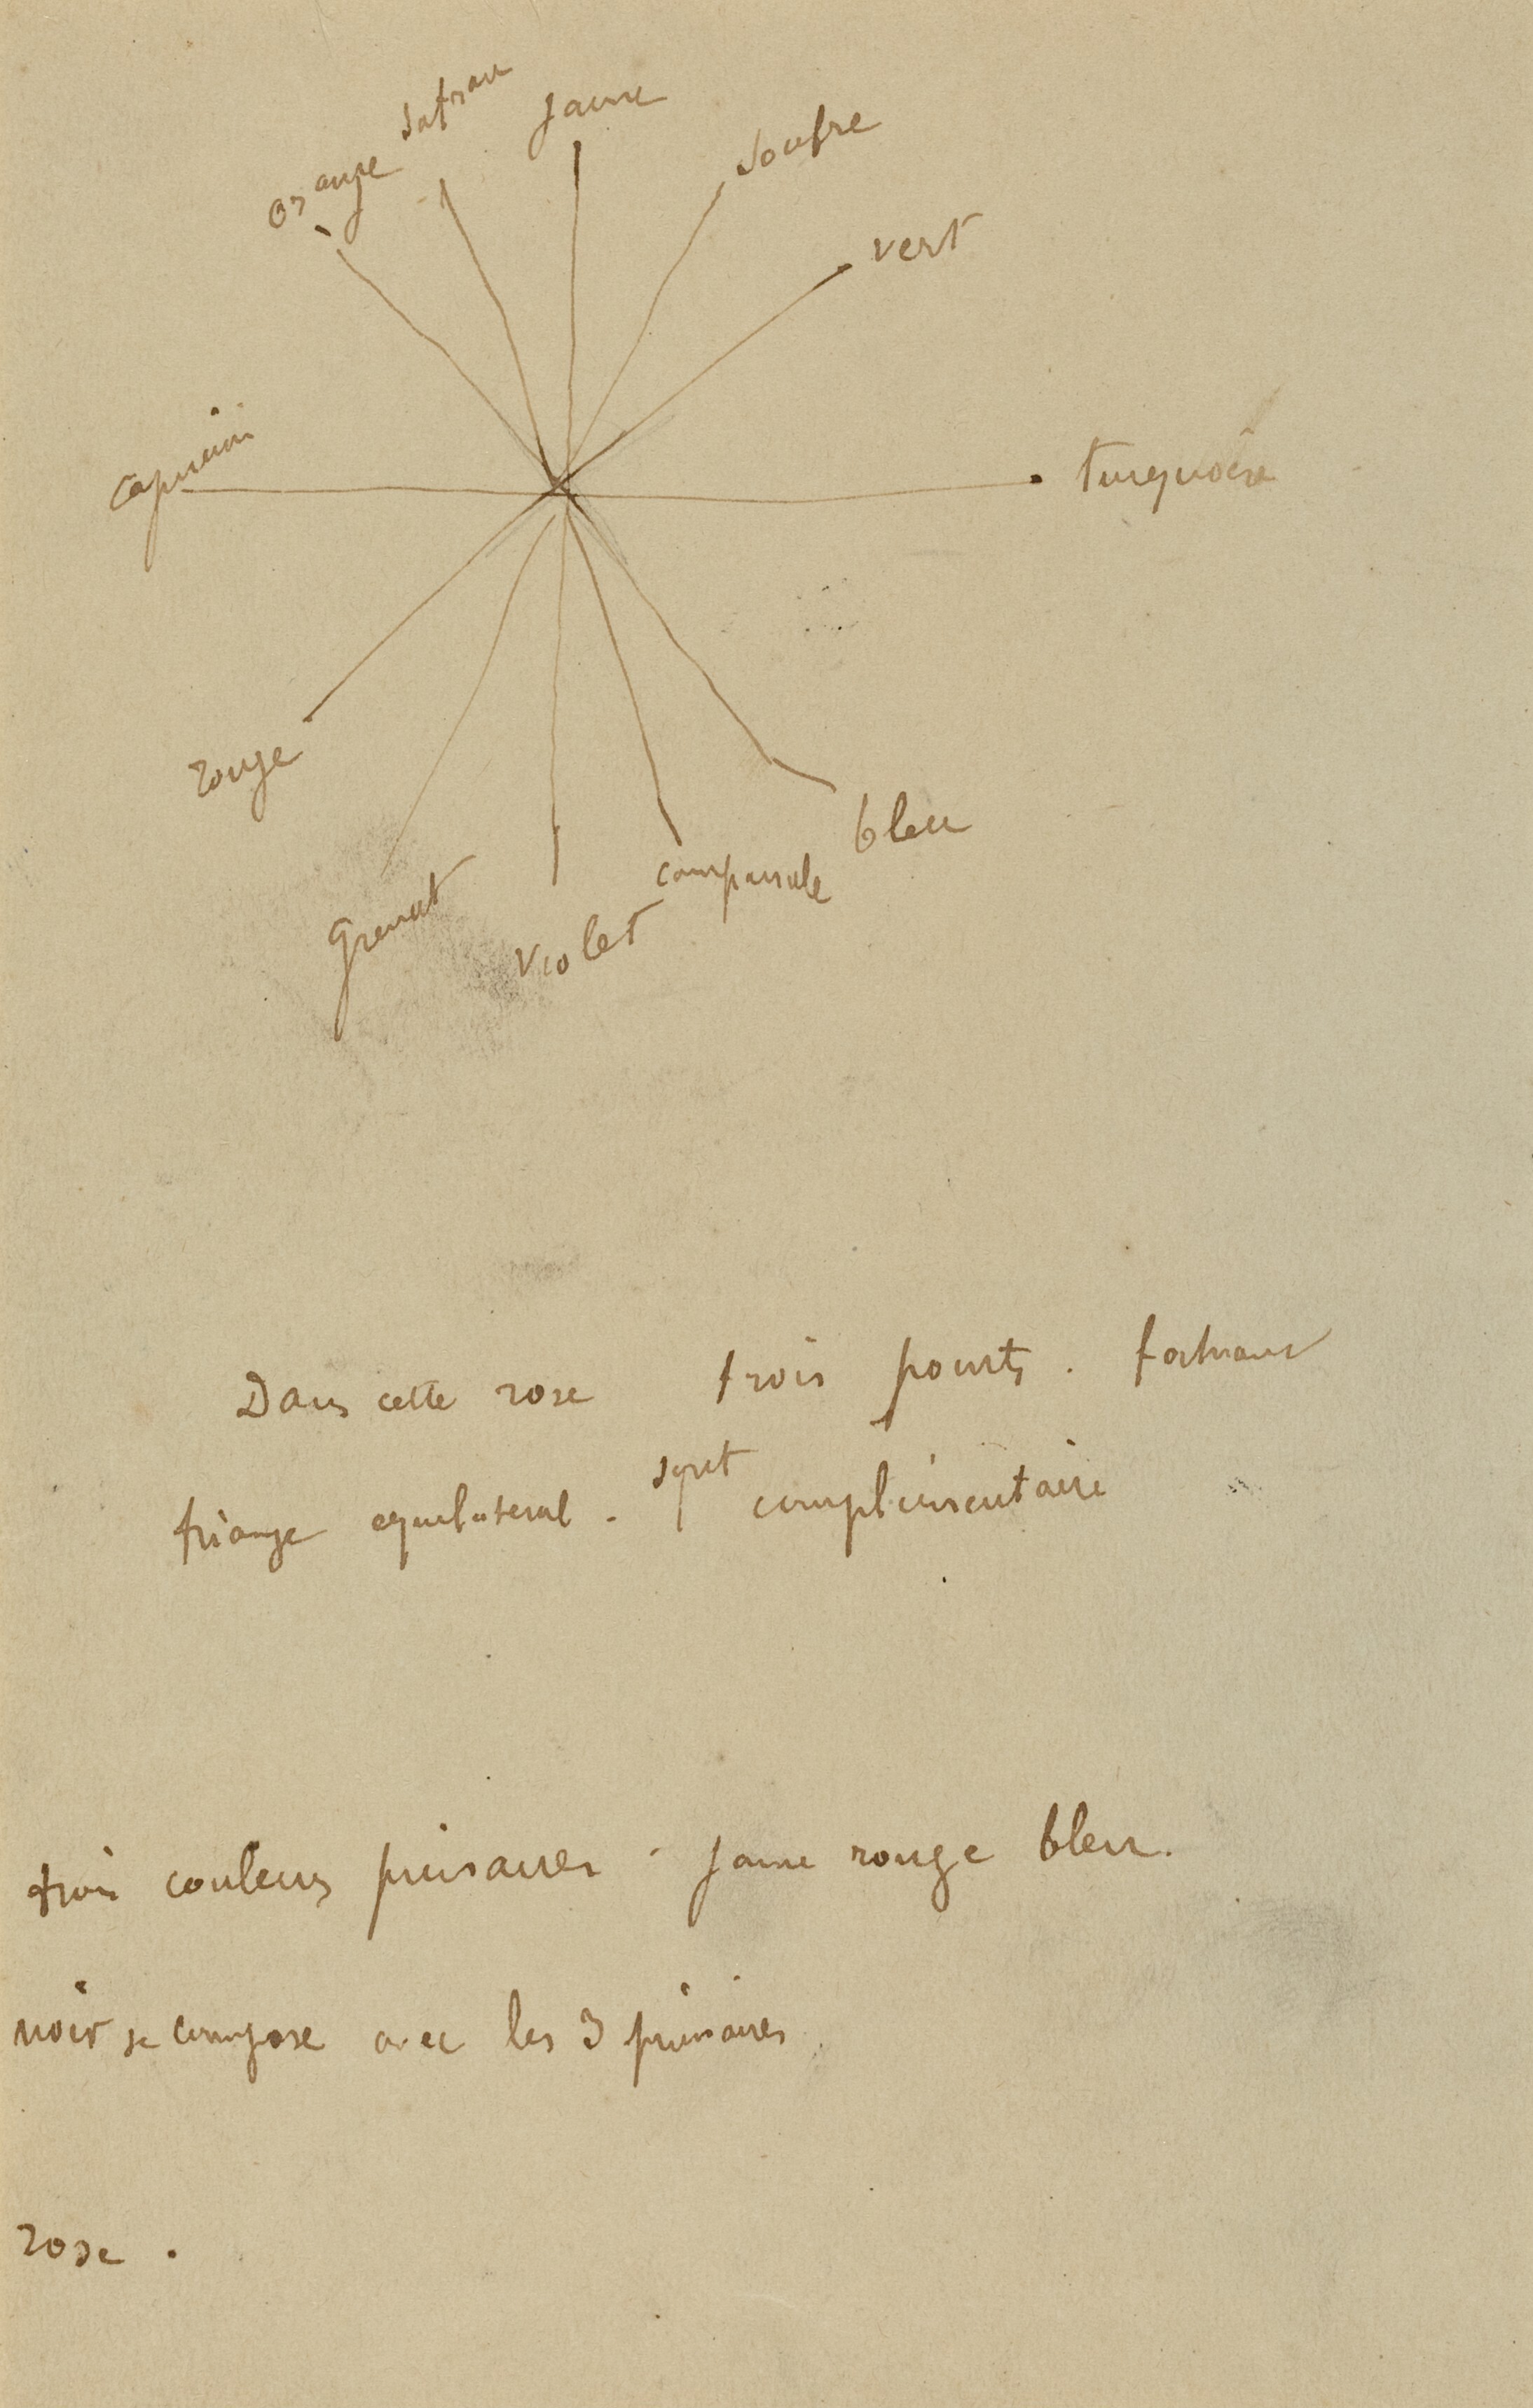 orange
safran
jaune
soufre
vert
turquoise
capucin
rouge
grenat
violet
campanule
bleu
Dans cette rose trois points. formant
triange equilateral. sont complimentaire
trois couleurs primaires. jaune rouge bleu.
noir se compose avec les 3 primaires.
rose.